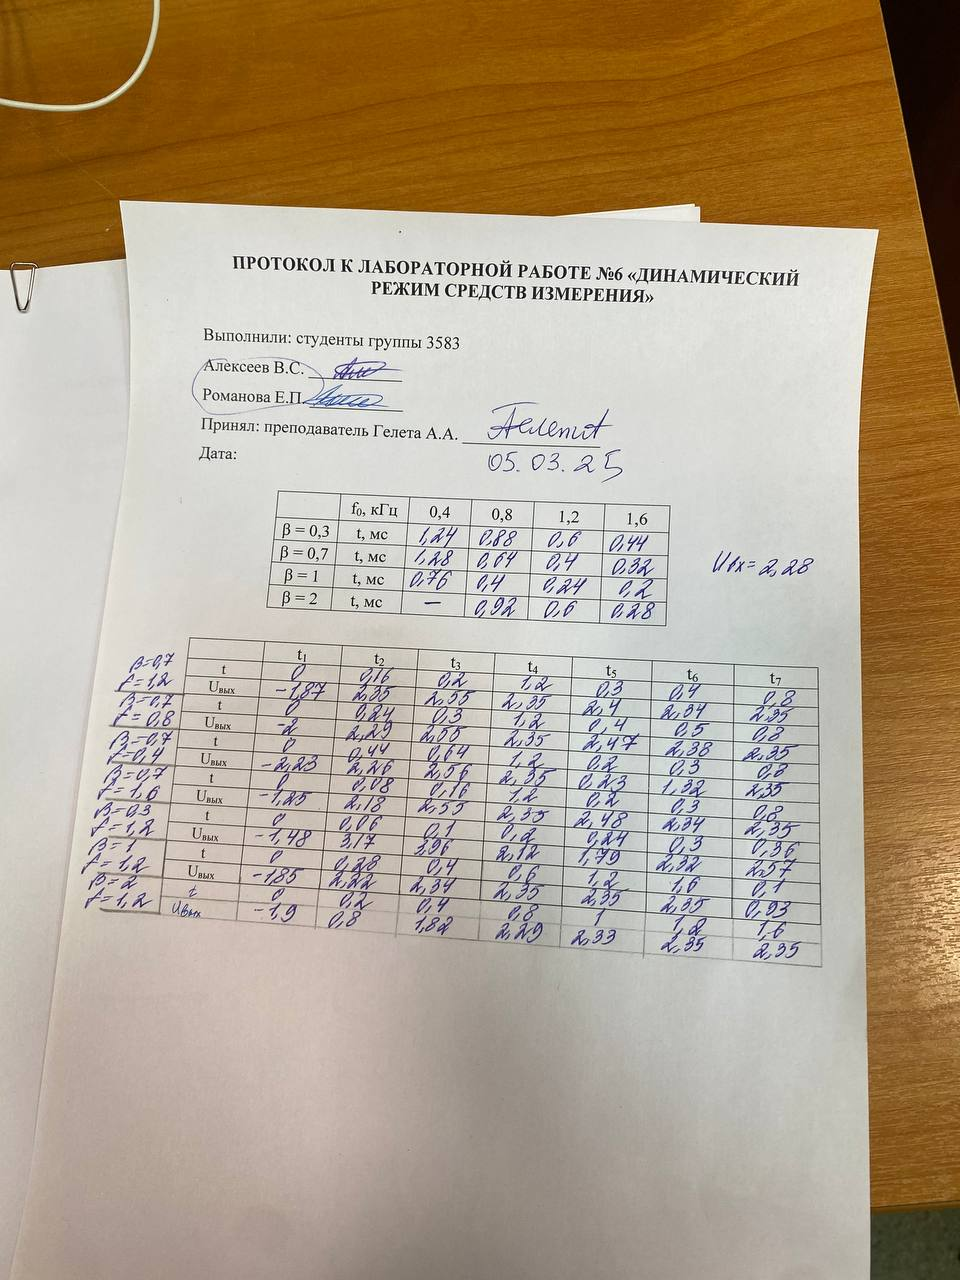 ПРОТОКОЛ К ЛАБОРАТОРНОЙ РАБОТЕ №6 «ДИНАМИЧЕСКИЙ
РЕЖИМ СРЕДСТВ ИЗМЕРЕНИЯ»
Выполнили: студенты группы 3583
Алексеев В.С.
Романова Е.П.
Принял: преподаватель Гелета А.А. Гелета
Дата: 05.03.25
f₀, кГц 0,4 0,8 1,2 1,6
β = 0,3 t, мс 1,24 0,88 0,6 0,44
β = 0,7 t, мс 1,28 0,64 0,4 0,32
Uвх = 2,28
β = 1 t, мс 0,76 0,4 0,24 0,2
β = 2 t, мс — 0,92 0,6 0,28
t₁ t₂ t₃ t₄ t₅ t₆ t₇
β=0,7 t 0 0,16 0,2 1,2 0,3 0,4 0,8
f=1,2 Uвых -1,87 2,35 2,55 2,35 2,4 2,34 2,35
β=0,7 t 0 0,24 0,3 1,2 0,4 0,5 0,8
f=0,8 Uвых -2 2,29 2,55 2,35 2,47 2,38 2,35
β=0,7 t 0 0,44 0,64 1,2 0,2 0,3 0,8
f=0,4 Uвых -2,23 2,26 2,56 2,35 0,23 1,32 2,35
β=0,7 t 0 0,08 0,16 1,2 0,2 0,3 0,8
f=1,6 Uвых -1,25 2,18 2,55 2,35 2,48 2,34 2,35
β=0,3 t 0 0,06 0,1 0,2 0,24 0,3 0,36
f=1,2 Uвых -1,48 3,17 3,96 2,12 1,79 2,32 2,57
β=1 t 0 0,28 0,4 0,6 1,2 1,6 0,1
f=1,2 Uвых -1,85 2,22 2,34 2,35 2,35 2,35 0,93
β=2 t 0 0,2 0,4 0,8 1 1,2 1,6
f=1,2 Uвых -1,9 0,8 1,82 2,29 2,33 2,35 2,35